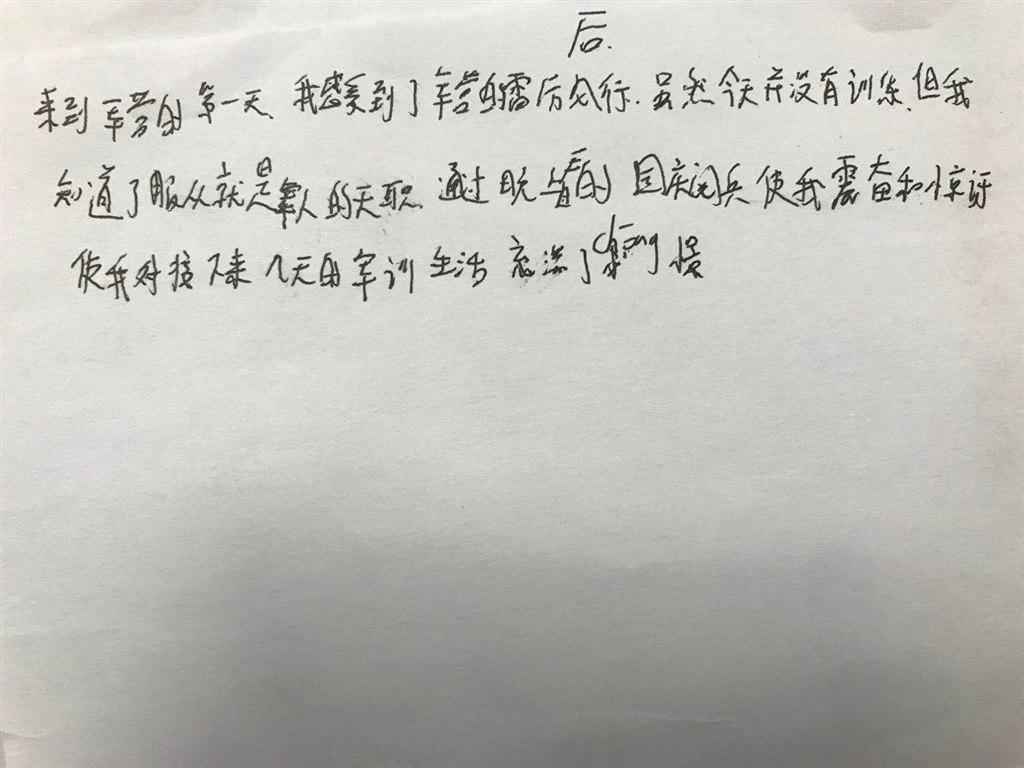 后.
来到军营的第一天、我感受到了军营的雷厉风行.虽然今天并没有训练.但我
知道了服从就是军人的天职.通过晚上看的国庆阅兵使我震奋和惊讶
使我对接下来几天的军训生活充满了chong憬